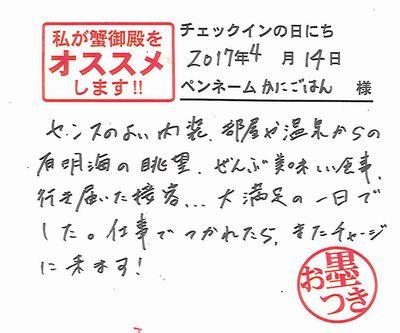 私が蟹御殿を
オススメ
します!!
チェックインの日にち
2017年4月14日
ペンネーム かにごはん 様
センスのよい内装、部屋や温泉からの
有明海の眺望、ぜんぶ美味しい食事、
行き届いた接客... 大満足の一日で
した。仕事でつかれたら、またチャージ
に来ます!
お墨
つき